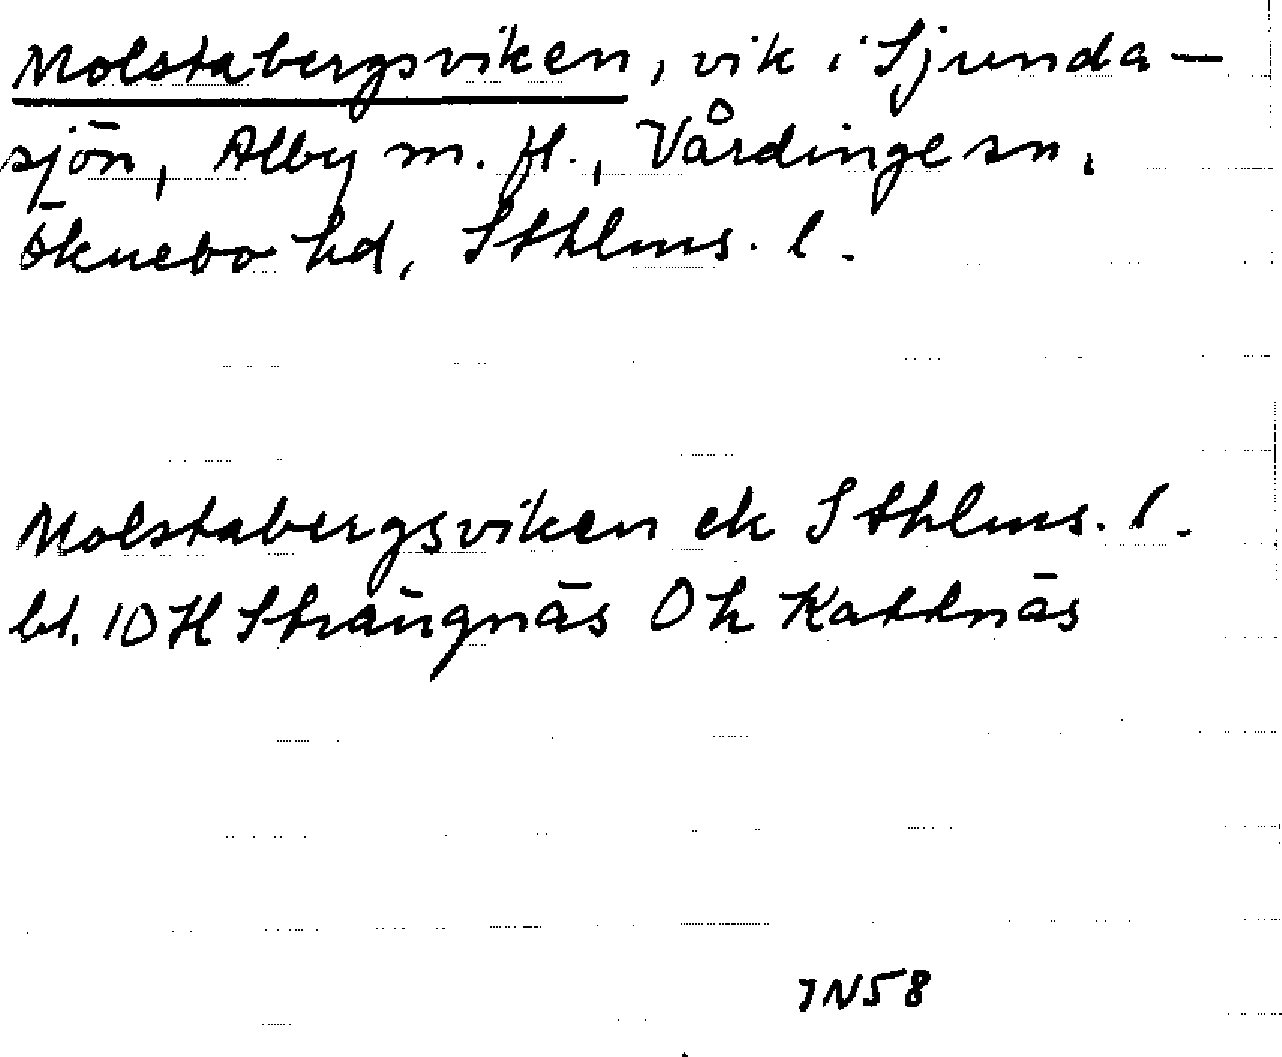 Molstabergsviken, vik i Sjunda-
sjön, Alby m. fl., Vårdinge sn,
Öknebo hd, Sthlms. l.
Molstabergsviken ek Sthlms. l.
bl. 10H Strängnäs Ok Kattnäs
JN58